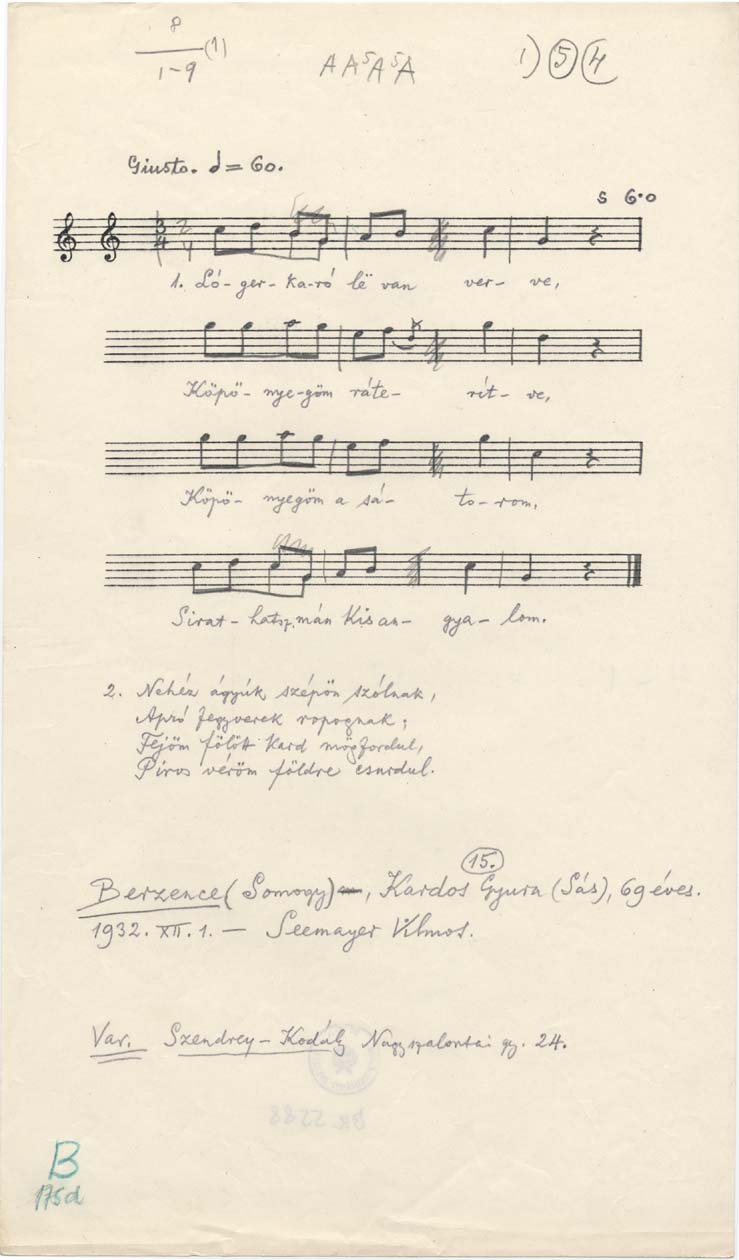 8
1-9 (1)
A A⁵ A⁵ A
1) 5 4
Giusto. d = 60.
s 6·0
3/4 2/4
1. Ló- ger- ka-ró lë van ver- ve,
Köpö- nye-göm ráte- rít- ve,
Köpö- nyegöm a sá- to- rom,
Sirat- hatsz mán Kisan- gya- lom.
2. Nehéz ágyúk szépön szólnak,
Apró fegyverek ropognak;
Fejöm fölött kard mögfordul,
Piros véröm földre csurdul.
15.
Berzence (Somogy), Kardos Gyura (Sás), 69 éves.
1932. XII. 1. — Seemayer Vilmos.
Var. Szendrey-Kodály Nagyszalontai gy. 24.
B
175d